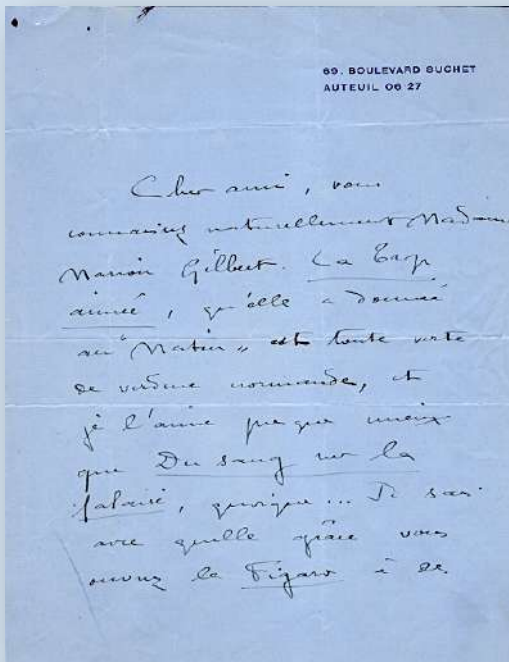 69. BOULEVARD SUCHET
AUTEUIL 06 27
Cher ami, vous
connaissez naturellement Madame
Marion Gilbert. La Trop
aimée, qu'elle a donnée
au "Matin" est toute verte
de verdure normande, et
je l'aime presque mieux
que Du sang sur la
falaise, quoique... Je sais
avec quelle grâce vous
ouvrez le Figaro à